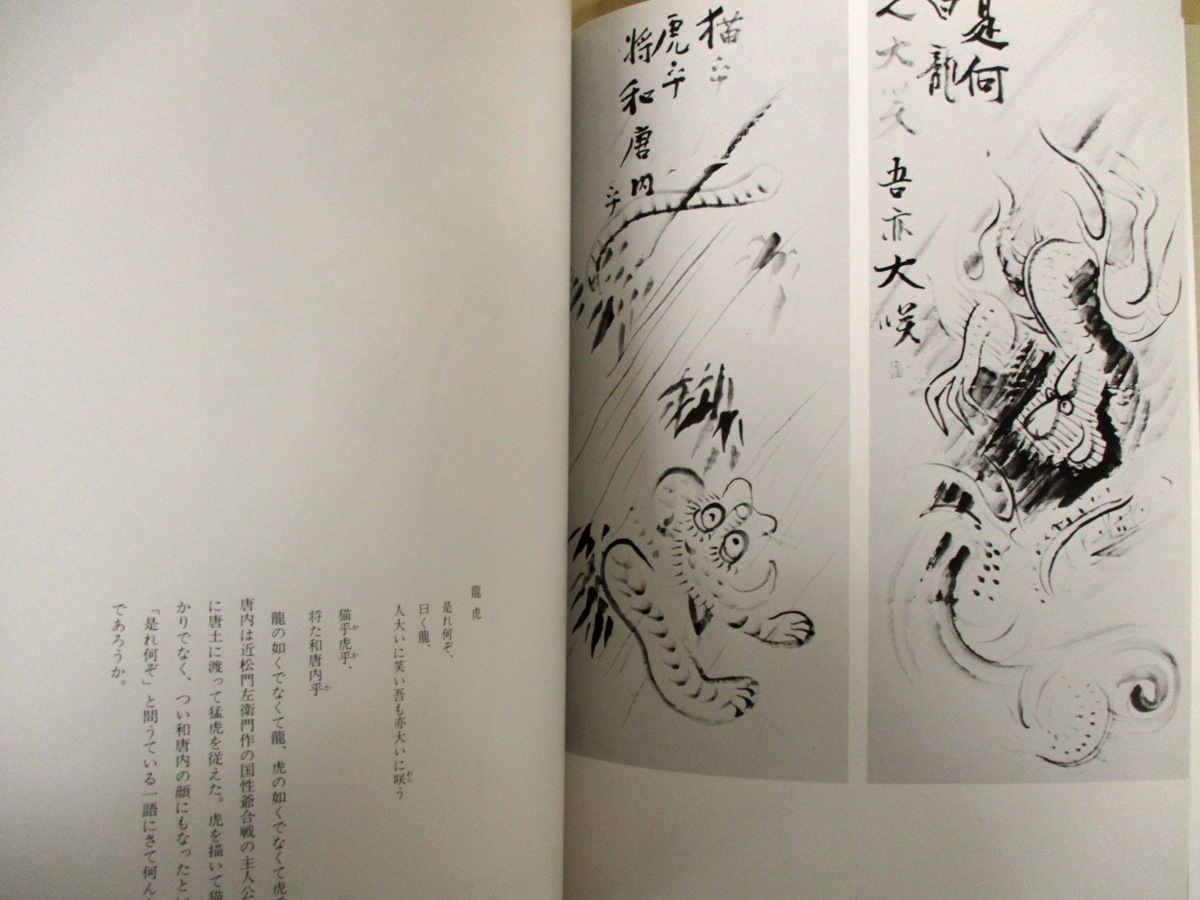 是何
曰龍
人大笑
吾亦大咲
猫乎
虎乎
将和唐内
乎
龍虎
是れ何ぞ、
曰く龍、
人大いに笑い吾も亦大いに咲う
わら
猫乎虎乎、
か
か
将た和唐内乎
か
龍の如くでなくて龍、虎の如くでなくて虎
唐内は近松門左衛門作の国性爺合戦の主人公
に唐土に渡って猛虎を従えた。虎を描いて猫
かりでなく、つい和唐内の顔にもなったとい
「是れ何ぞ」と問うている一語にさて何ん
であろうか。